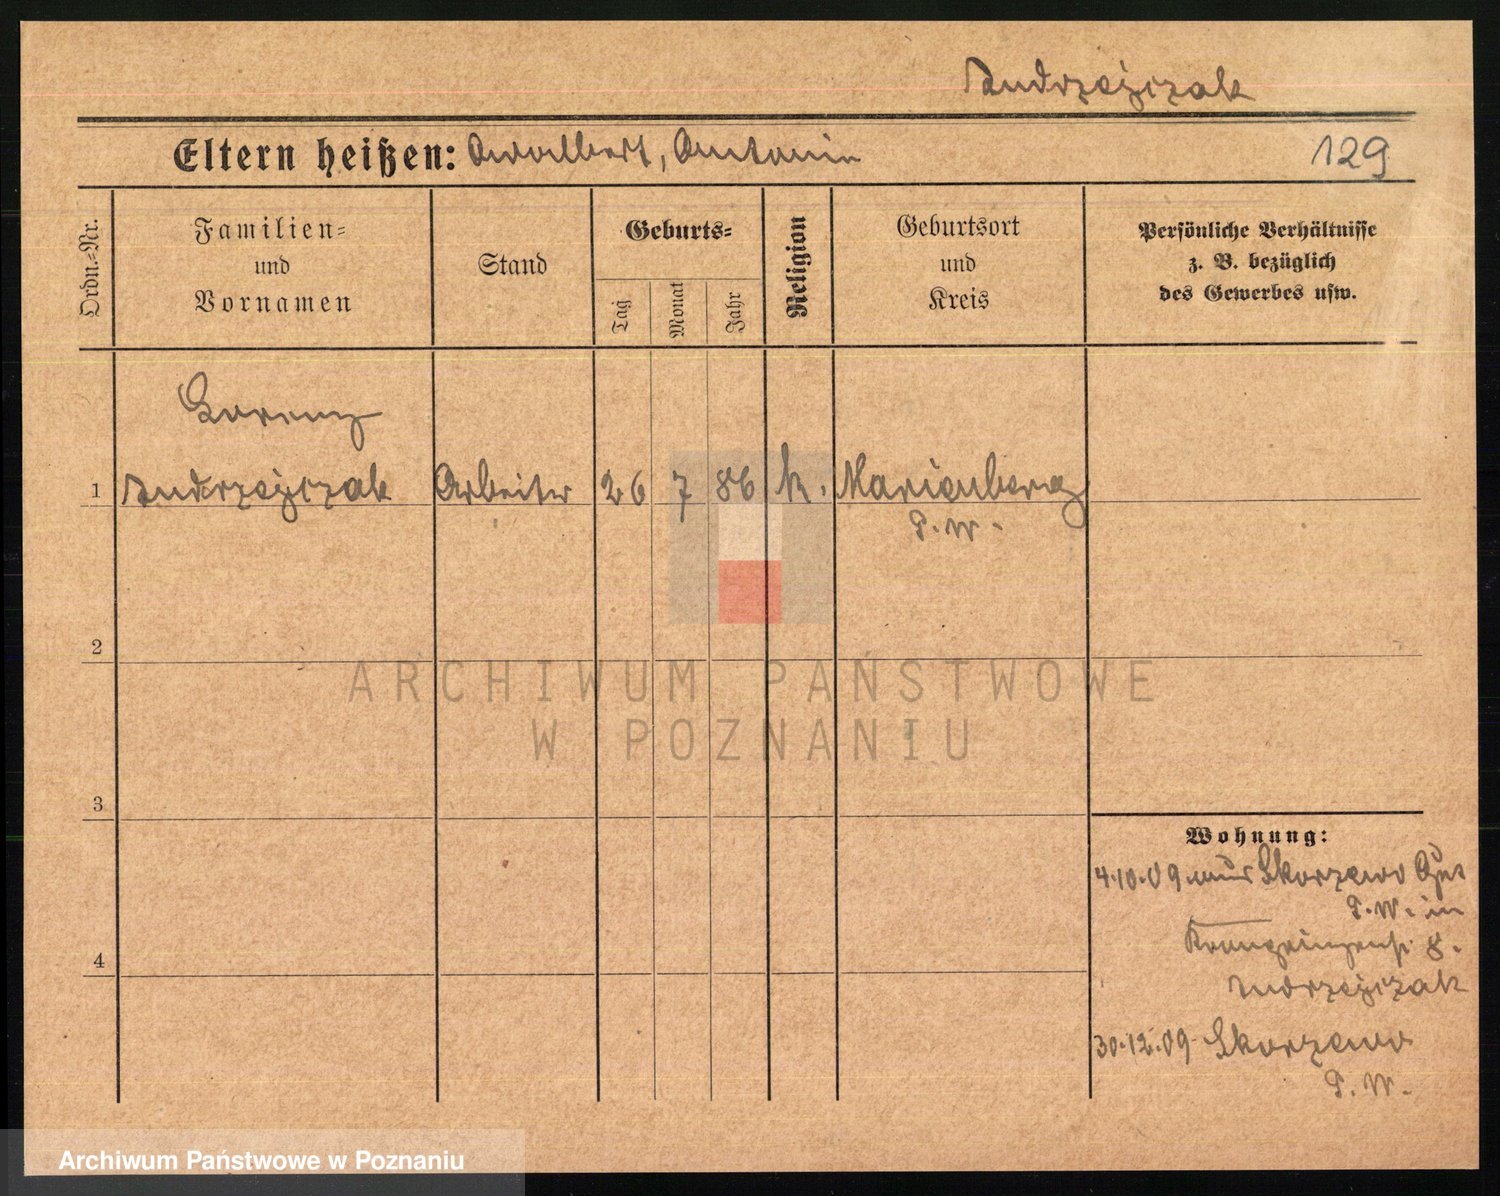 Andrzejczak
Eltern heißen: Adalbert, Antonie
129
Ordn.-Nr.
Familien-
und
Vornamen
Stand
Geburts-
Tag
Monat
Jahr
Religion
Geburtsort
und
Kreis
Persönliche Verhältnisse
z. B. bezüglich
des Gewerbes usw.
Lorenz
1 Andrzejczak Arbeiter 26 7 86 k. Marienberg
P. W.
2
3
4
ARCHIWUM PAŃSTWOWE
W POZNANIU
Wohnung:
4.10.09 aus Skorzewo Gut
P. W. in
Kronprinzenstr. 8.
Andrzejczak
30.12.09 Skorzewo
P. W.
Archiwum Państwowe w Poznaniu